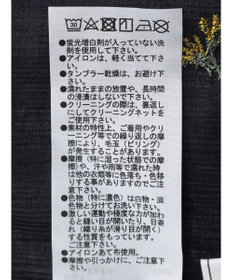 ●蛍光増白剤が入っていない洗
剤を使用して下さい。
●アイロンは、軽く当てて下さ
い。
●タンブラー乾燥は、お避け下
さい。
●濡れたままの放置や、長時間
の浸漬はしないで下さい。
●クリーニングの際は、裏返し
にしてクリーニングネットを
ご使用下さい。
●素材の特性上、ご着用やクリ
ーニング等での繰り返しの摩
擦により、毛玉(ピリング)
が発生することがあります。
●摩擦(特に湿った状態での摩
擦)や、汗や雨等で濡れた時
は他の衣類等に色落ち・色移り
する事がありますのでご注意
下さい。
●色物(特に濃色)は白・淡
色物と分けてお洗い下さい。
●激しい運動や極度な力が加わ
ると縫い目が開いたり、目寄
れ(織り糸が滑り開く)
する性質をもっています。
ご注意下さい。
●アイロンあて布使用。
●摩擦や引っかけに、ご注意下
さい。